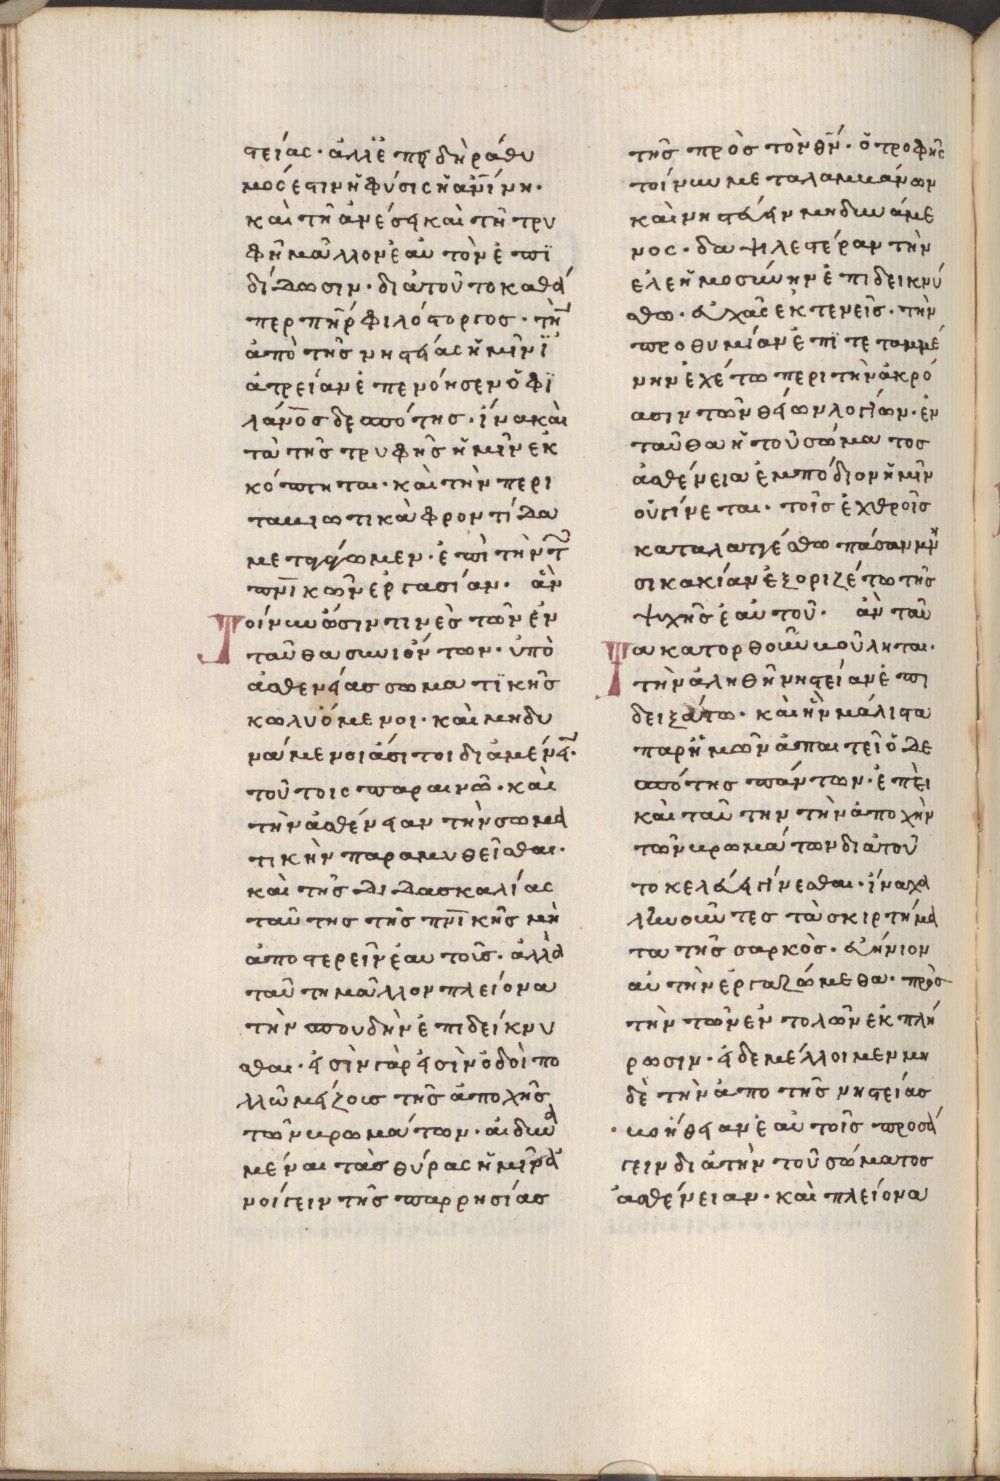 στείας· ἀλλ' ἐπειδὴ ῥάθυ
μός ἐστιν ἡ φύσις ἡ ἀν̅ίνη·
καὶ τῇ ἀνέσει καὶ τῇ τρυ
φῇ μᾶλλον ἑαυτὸν ἐπι
δίδωσιν· διὰ τοῦτο καθά
περ πη̅ρ φιλόστοργος· τὴν
ἀπὸ τῆς νηστείας ἡμῖν ἰ
ατρείαν ἐπενόησεν ὁ φι
λάν̅ος δεσπότης· ἵνα καὶ
τὰ τῆς τρυφῆς ἡμῖν ἐκ
κόπτηται· καὶ τὴν περὶ
τα βιωτικὰ φροντίδα
μεταγάγωμεν· ἐπὶ τὴν τῶν
πν̅ικῶν ἐργασίαν· ἂν
τοίνυν ὦσιν τινὲς τῶν ἐν
ταῦθα συνιόντων· ὑπὸ
ἀσθενείας σωματικῆς
κωλυόμενοι· καὶ μὴ δυ
νάμενοι ἄσιτοι διαμένειν·
τούτοις παραινῶ· καὶ
τὴν ἀσθένειαν τὴν σωμα
τικὴν παραμυθεῖσθαι·
καὶ τῆς διδασκαλίας
ταύτης τῆς πν̅ικῆς μὴ
ἀποστερεῖν ἑαυτούς· ἀλλὰ
ταύτη μᾶλλον πλείονα
τὴν σπουδὴν ἐπιδείκνυ
σθαι· εἰσὶν γὰρ εἰσὶν ὁδοὶ πο
λλῶ μείζοις τῆς ἀποχῆς
τῶν βρωμάτων· αἱ δυνά
μεναι τὰς θύρας ἡμῖν ἀ
νοίγειν τῆς παρρησίας
τῆς πρὸς τὸν θν̅· ὁ τροφῆς
τοίνυν μεταλαμβάνων
καὶ νηστεύειν μὴ δυνάμε
νος· δαψιλεστέραν τὴν
ἐλεημοσύνην ἐπιδεικνύ
σθω· εὐχὰς ἐκτενεῖς· τὴν
προθυμίαν ἐπιτεταμμέ
νην ἐχέτω περὶ τὴν ἀκρό
ασιν τῶν θείων λογίων· ἐν
ταῦθα ἡ τοῦ σώματος
ἀσθένεια ἐμπόδιον ἡμῖν
οὐ γίνεται· τοῖς ἐχθροῖς
καταλαττέσθω πάσαν μνη
σικακίαν ἐξοριζέτω τῆς
ψυχῆς ἑαυτοῦ· ἂν ταῦ
τα κατορθοῦν βούληται·
τὴν ἀληθῆ νηστείαν ἐπι
δειξάτω· καὶ ἣν μάλιστα
παρ' ἡμῶν ἀπαιτεῖ ὁ δε
σπότης πάντων· ἐπεὶ
καὶ ταύτην τὴν ἀποχὴν
τῶν βρωμάτων διὰ τοῦ
το κελεύει γίνεσθαι· ἵνα χα
λινοῦντες τὰ σκιρτήμα
τα τῆς σαρκὸς· εὐήνιον
αὐτὴν ἐργαζώμεθα· πρὸς
τὴν τῶν ἐντολῶν ἐκπλή
ρωσιν· εἰ δὲ μέλλοιμεν μη
δὲ τὴν ἀπὸ τῆς νηστείας
βοήθειαν ἑαυτοῖς προσά
γειν διὰ τὴν τοῦ σώματος
ἀσθένειαν· καὶ πλείονα